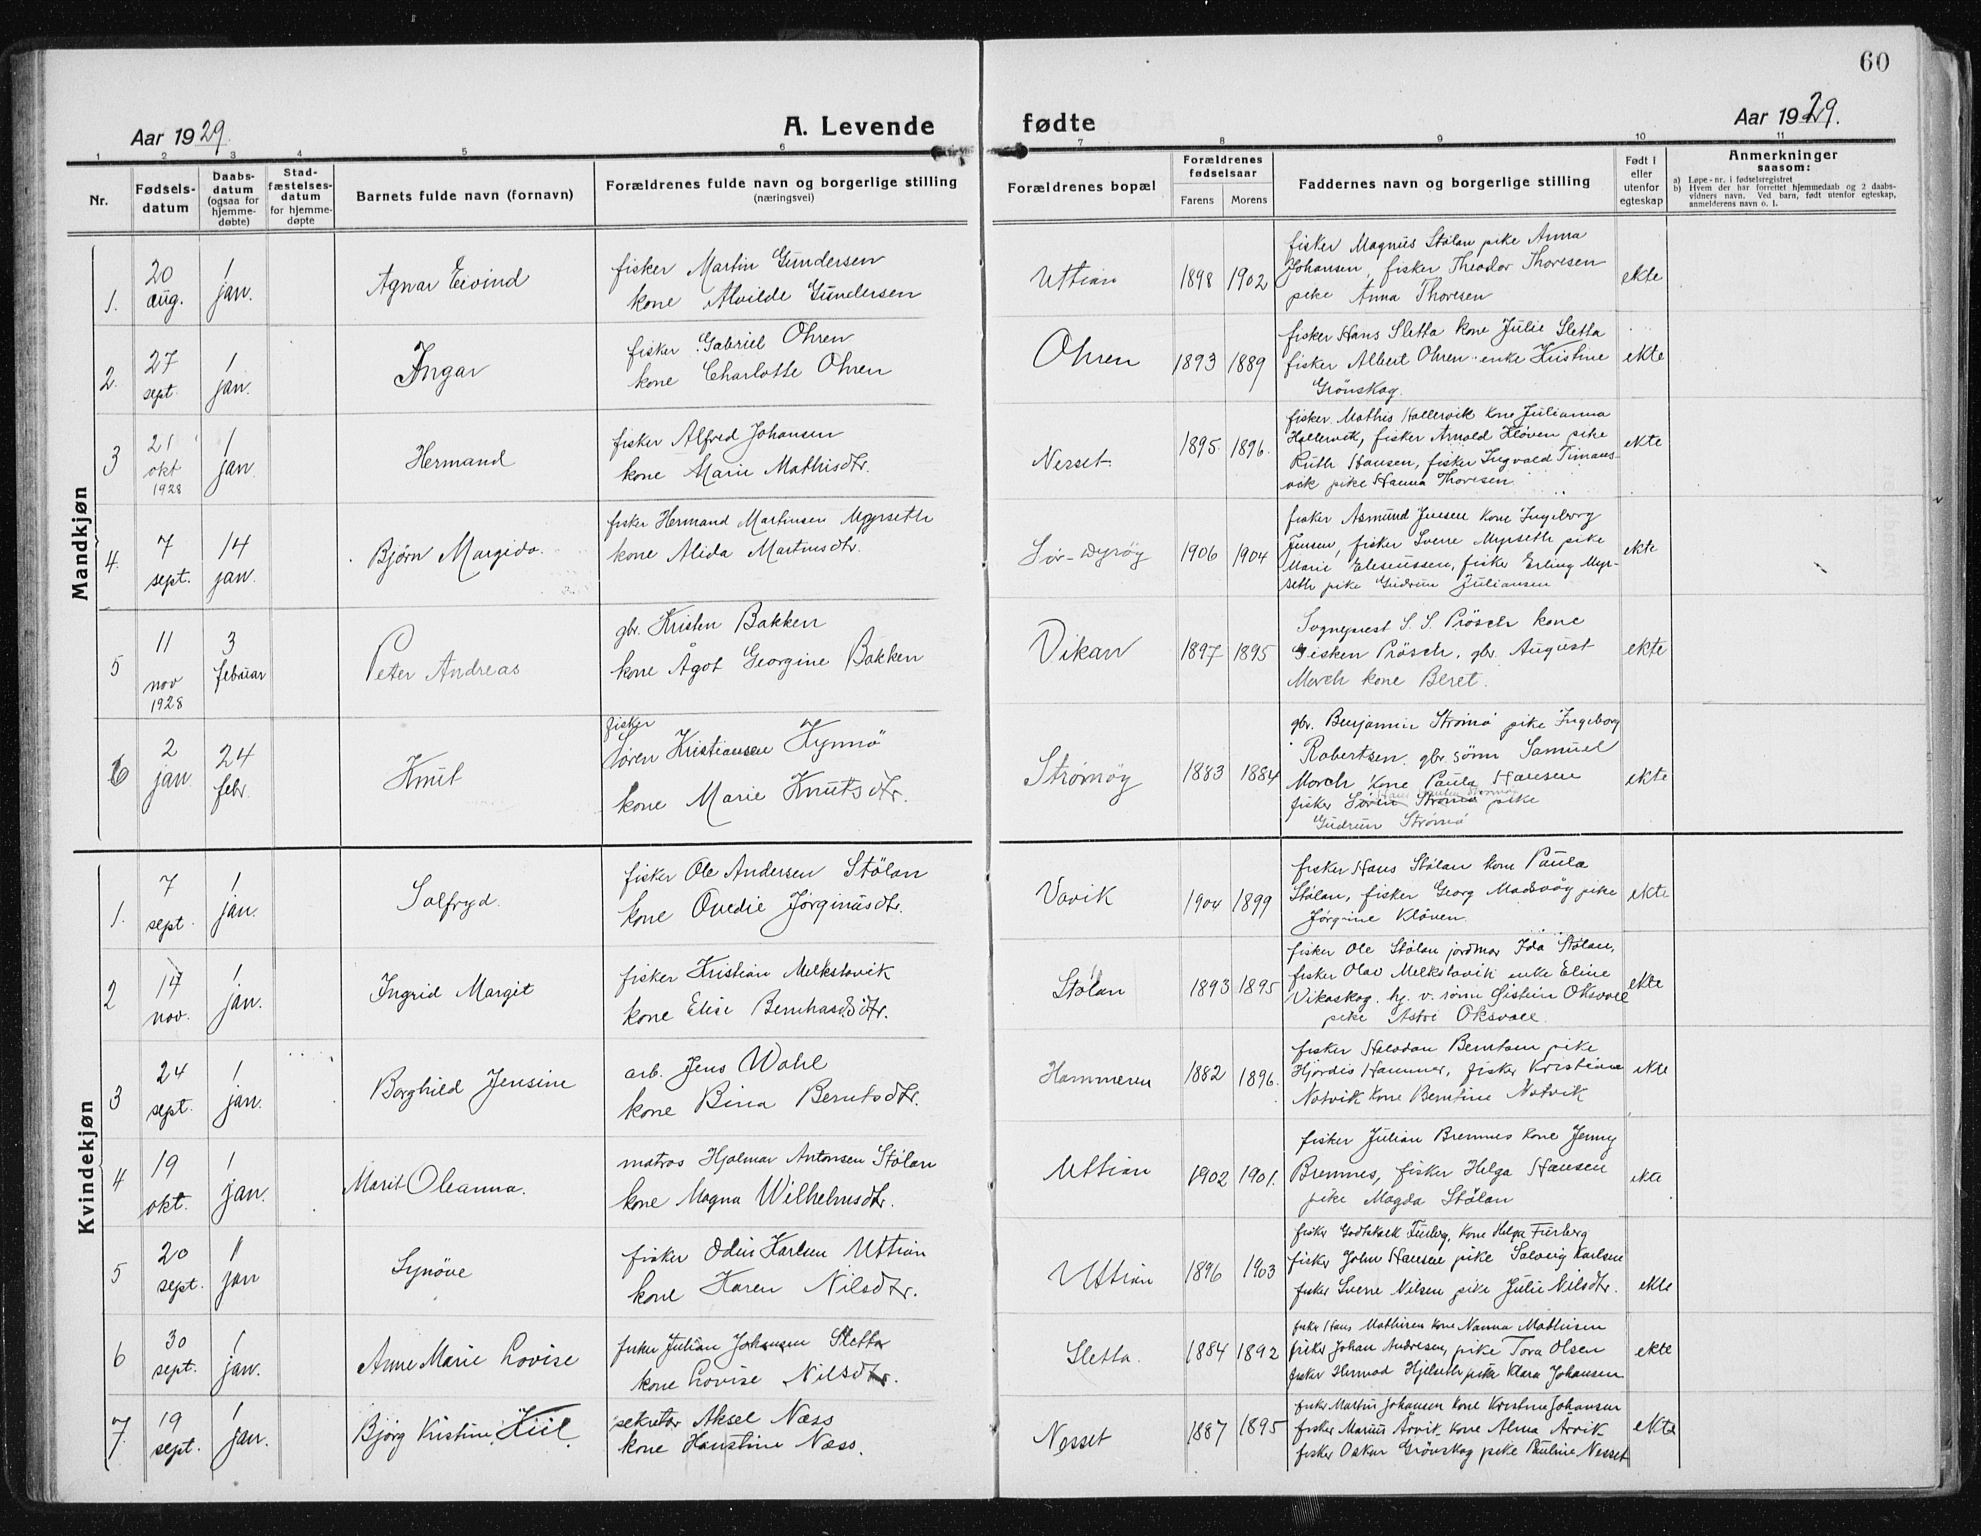 60
Aar 1929.
A. Levende
fødte
Aar 1929.
1 2 3 4 5 6 7 8 9 10 11
Nr.
Fødsels-
datum
Daabs-
datum
(ogsaa for
hjemme-
døbte)
Stad-
fæstelses-
datum
for hjemme-
døpte
Barnets fulde navn (fornavn)
Forældrenes fulde navn og borgerlige stilling
(næringsvei)
Forældrenes bopæl
Forældrenes
fødselsaar
Farens
Morens
Faddernes navn og borgerlige stilling
Født i
eller
utenfor
egteskap
Anmerkninger
saasom:
a) Løpe-nr. i fødselsregistret
b) Hvem der har forrettet hjemmedaab og 2 daabs-
vidners navn. Ved barn, født utenfor egteskap,
anmelderens navn o. l.
Mandkjøn
1. 20 aug. 1 jan. Agnar Eivind
fisker Martin Gundersen
kone Alvilde Gundersen
Uttian 1898 1902
fisker Magnus Stølan pike Anna
Johansen, fisker Theodor Thoresen
pike Anna Thoresen
ekte
2. 27 sept 1 jan. Ingar
fisker Gabriel Ohren
kone Charlotte Ohren
Ohren 1893 1889
fisker Hans Sletta kone Julie Sletta
fisker Albert Ohren enke Kristine
Grönskag.
ekte
3 21 okt 1928 1 jan. Hermand
fisker Alfred Johansen
kone Marie Mathisdtr.
Nesset. 1895 1896.
fisker Mathis Hallervik kone Julianna
Hallervik, fisker Arnold Kløven pike
Ruth Hansen, fisker Ingvald Timans-
vik pike Hanna Thoresen
ekte
4. 7 sept. 14 jan. Bjørn Margido.
fisker Hermand Martinsen Myrseth
kone Alida Martinsdtr.
Sør-Dyrøy 1906 1904
fisker Asmund Jensen kone Ingeborg
Jensen, fisker Sverre Myrseth pike
Marie Eleseussen, fisker Erling Myr-
seth pike Gudrun Juliansen
ekte
5 11 nov 1928 3 februar Peter Andreas
gbr. Kristen Bakken
kone Ågot Georgine Bakken
Vikan 1897 1895
Sogneprest S. S. Prösch kone
Gisken Prösch, gbr. August
Morch kone Beret.
ekte
6 2 jan 24 febr. Knut
fisker
Sören Kristiansen Kynnö
kone Marie Knutsdtr.
Strømøy 1883 1884
gbr. Benjamin Strømø pike Ingeborg
Robertsen. gbr sønn Samuel
Morch kone Paula Hansen
fisker Søren Strømø pike
Gudrun Strømø
ekte
Kvindekjøn
1. 7 sept. 1 jan. Solfryd.
fisker Ole Andersen Stölan
kone Ovedie Jörginusdtr.
Vavik 1904 1899
fisker Hans Stølan kone Paula
Stølan, fisker Georg Madsvåg pike
Jørgine Kløven.
ekte
2 17 nov. 1 jan. Ingrid Margit
fisker Kristian Melkstavik
kone Elise Bernhardsdtr.
Stølan 1893 1895
fisker Ole Stølan jordmor Ida Stølan,
fisker Olav Melkstavik enke Eline
Vikaskag. hg. v. sønn Øistein Oksvoll
pike Astri Oksvoll.
ekte
3 24 sept. 1 jan. Borghild Jensine
arb. Jens Wahl
kone Bina Berntsdtr.
Hammeren 1882 1896.
fisker Halvdan Berntsen pike
Hjördis Hammer, fisker Kristian
Notvik kone Berntine Notvik
ekte
4 19 okt. 1 jan. Marit Oleanna.
matros Hjalmar Antonsen Stølan
kone Magna Wilhelmsdtr.
Uttian 1902 1901.
fisker Julian Bremnes kone Jenny
Bremnes, fisker Helga Hansen
pike Magda Stølan
ekte
5 20 sept. 1 jan Synöve
fisker Odin Karlsen Uttian
kone Karen Nilsdtr.
Uttian 1896 1903
fisker Godtskalk Furberg, kone Helga Furberg
fisker John Hansen pike Solveig Karlsen
fisker Sverre Nilsen pike Julie Nilsdtr.
ekte
6 30 sept. 1 jan. Anne Marie Lovise
fisker Julian Johansen Sletta
kone Lovise Nilsdtr.
Sletta. 1884 1892
fisker Hans Mathisen kone Nanna Mathisen
fisker Johan Andresen, pike Tora Olsen
fisker Hermod Hjelseth pike Klara Johansen
ekte
7. 19 sept. 1 jan. Bjørg Kristine Kiil.
sekretær Aksel Næss
kone Hanstine Næss.
Nesset 1887 1895
fisker Martin Johansen kone Kristine Johansen
fisker Marius Årvik kone Alma Årvik
fisker Oskar Grönskag pike Pauline Nesset
ekte